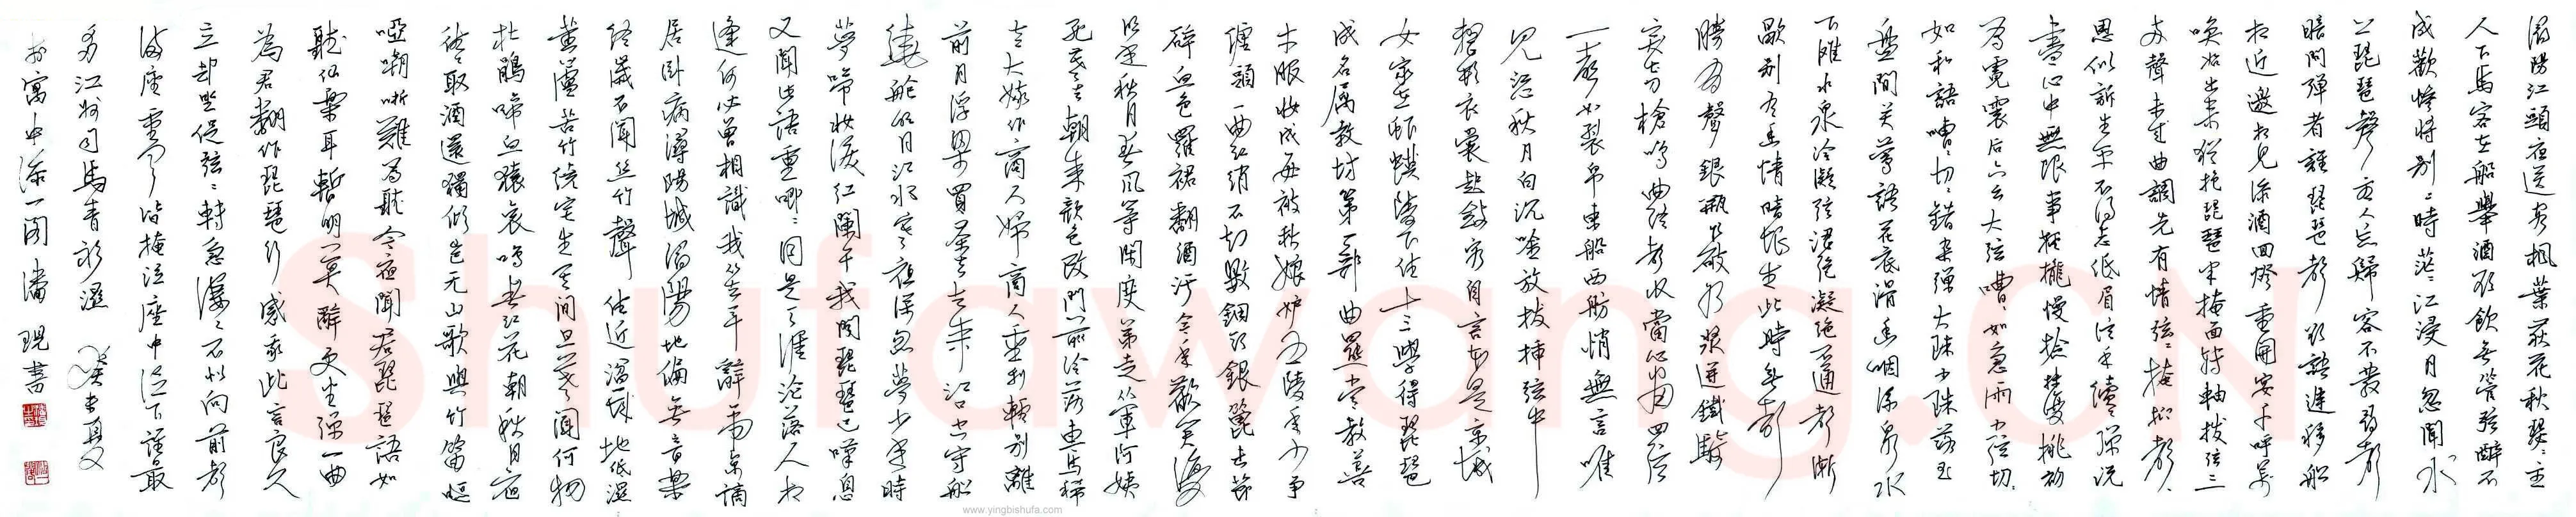 潯陽江頭夜送客楓葉荻花秋瑟〻主
人下馬客在船舉酒欲飲無管弦醉不
成歡慘將別〻時茫〻江浸月忽聞水
上琵琶聲主人忘歸客不發尋聲
暗問彈者誰琵琶聲欲語遲移船
相近邀相見添酒回燈重開宴千呼萬
喚始出來猶抱琵琶半掩面轉軸撥弦三
兩聲未成曲調先有情弦〻掩抑聲〻
思似訴生平不得志低眉信手續彈說
盡心中無限事輕攏慢撚抹復挑初
為霓裳后六么大弦嘈〻如急雨小弦切〻
如私語嘈〻切〻錯雜彈大珠小珠落玉
盤間关鶯語花底滑幽咽流泉水
下灘水泉冷凝弦澀絕凝絕不通聲漸
歇別有幽情暗恨生此時無聲
勝有聲銀瓶乍破水漿迸鐵騎
突刀槍鳴曲終收當心畫四弦
一聲如裂帛東船西舫悄無言唯
見江秋月白沉吟放撥插弦中
整頓衣裳起斂容自言本是京城
女家在蝦蟆陵下住十三學得琵琶
成名属教坊第一部曲罷常教善
才服妝成每被秋娘妒五陵年少爭
纏頭一曲紅綃不知數鈿頭銀篦擊節
碎血色羅裙翻酒污今年歡笑復
明年秋月春風等閑度弟走從軍阿姨
死暮去朝來顏色改門前冷落車馬稀
老大嫁作商人婦商人重利輕別離
前月浮梁買茶去去來江口空守船
繞艙明月江水寒夜深忽夢少年時
夢啼妝淚紅闌干我聞琵琶已嘆息
又聞此語重唧〻同是天涯淪落人相
逢何必曾相識我從去年辭帝京謫
居臥病潯陽城潯陽地僻無音樂
終歲不聞絲竹聲住近湓城地低濕
黃蘆苦竹繞宅生其間旦暮聞何物
杜鵑啼血猿哀鳴春江花朝秋月夜
往〻取酒還獨傾豈无山歌與竹笛嘔
啞嘲哳難為聽今夜聞君琵琶語如
聽仙樂耳暫明莫辭更坐彈一曲
為君翻作琵琶行感我此言良久
立却坐促弦〻轉急淒〻不似向前聲
滿座重聞皆掩泣座中泣下誰最
多江州司馬青衫濕 癸未夏又
於寓中添一閣潘現書
Shufawang.CN
www.yingbishufa.com